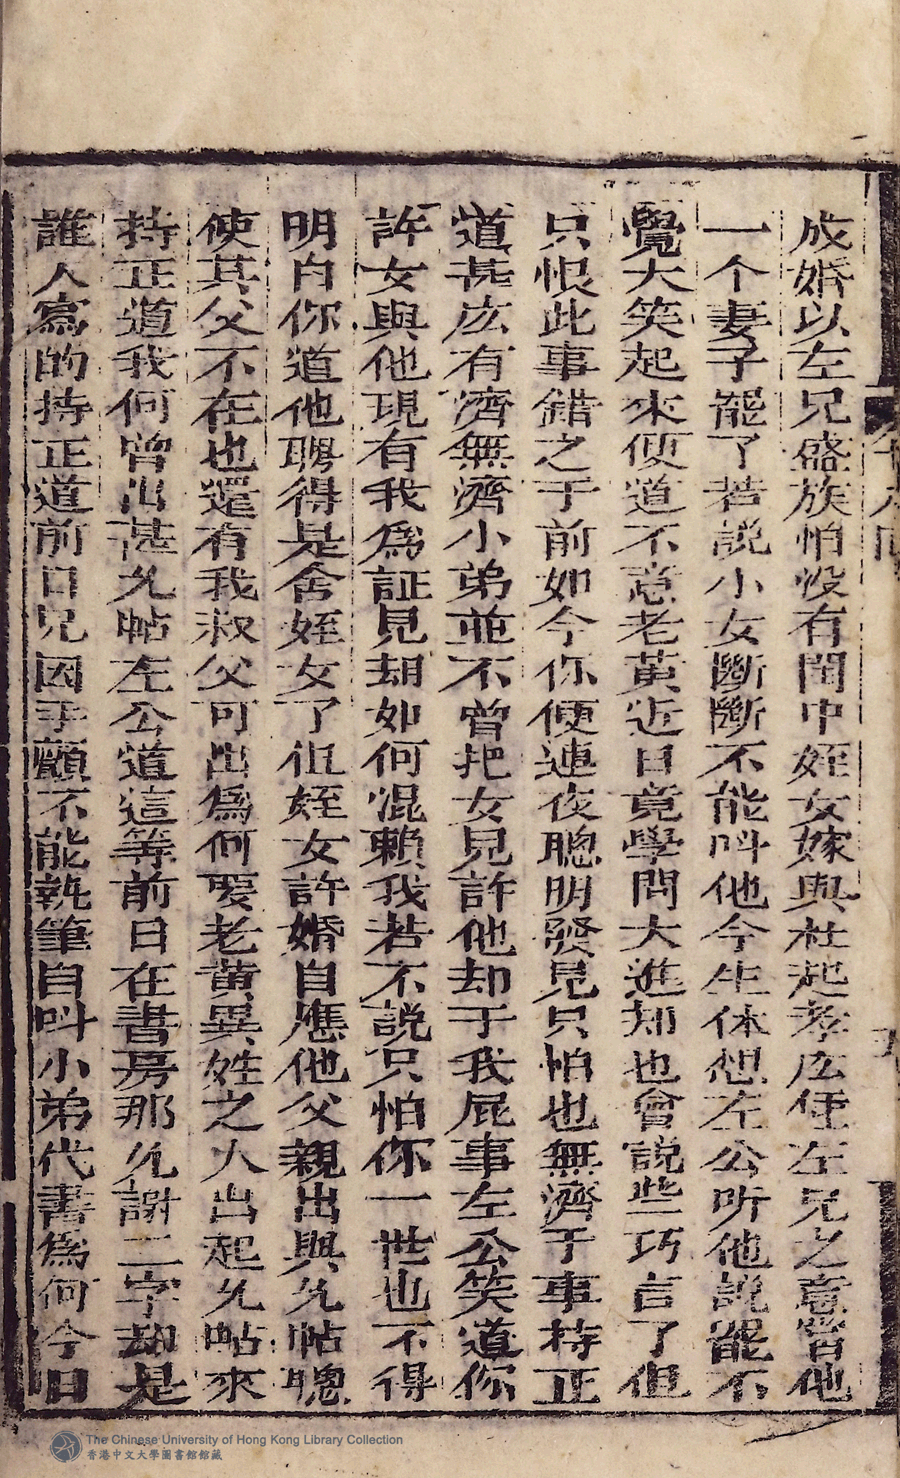 成婚以左兄盛族怕没有閨中姪女嫁與杜起孝庅侄左兄之意皆他
一个妻子罷了若説小女斷斷不能呌他今生休想左公听他説罷不
覺大笑起來便道不意老黄近日竟學問大進却也會説些巧言了但
只恨此事錯之于前如今你便連夜聰明發見只怕也無濟于事持正
道甚庅有濟無濟小弟並不曾把女兒許他却于我屁事左公笑道你
許女與他現有我爲証見却如何混賴我若不説只怕你一世也不得
明白你道他聘得是舍姪女了但姪女許婚自應他父親出與允帖聰
使其父不在也還有我叔父可出爲何要老黄異姓之人出起允帖來
持正道我何曾出甚允帖左公道這等前日在書房那允謝二字却是
誰人寫的持正道前日兄因手顫不能執筆自呌小弟代書爲何今日
The Chinese University of Hong Kong Library Collection
香港中文大學圖書館館藏